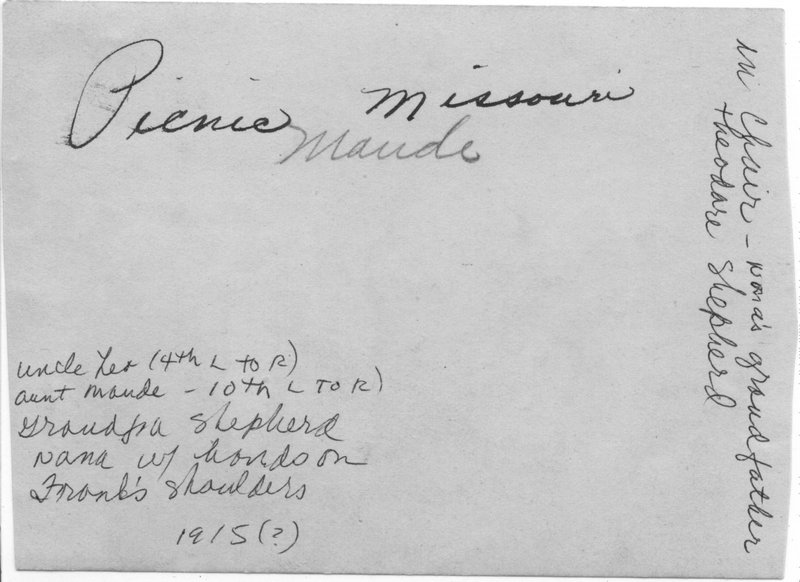 Picnic Missouri
Maude
uncle Leo (4th L to R)
aunt Maude - 10th L TO R)
Grandpa Shepherd
Nana w/ hands on
Frank's shoulders
1915 (?)
in Chair - Nona's grandfather
Theodore Shepherd